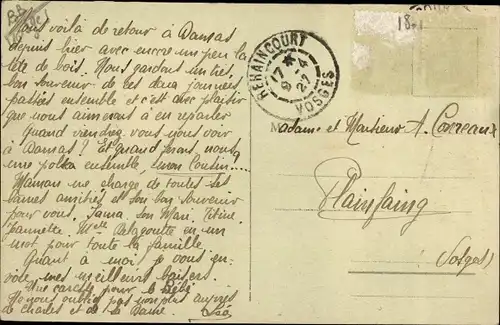 Nous voilà de retour à Damas
depuis hier avec encore un peu la
tête de bois. Nous gardons un très
bon souvenir de ces deux journées
passées ensemble et c'est avec plaisir
que nous aimerons à en reparler
Quand viendrez vous nous voir
à Damas ? Et quand ferons nous
une polka ensemble, mon Cousin ?...
Maman me charge de toutes ses
bonnes amitiés et son bon souvenir
pour vous. Jama, Son Mari, Titine
Jeannette Melle Delagoutte en un
mot pour toute la famille
Quant à moi je vous en-
voie mes meilleurs baisers.
Une caresse pour le Bébé
Ne nous oubliez pas non plus auprès
de Charles et de la Dame. Léo
REHAINCOURT
17 *
9 - 4
27
VOSGES
18-
Madame et Monsieur A. Correaux
Plainfaing
(Vosges)